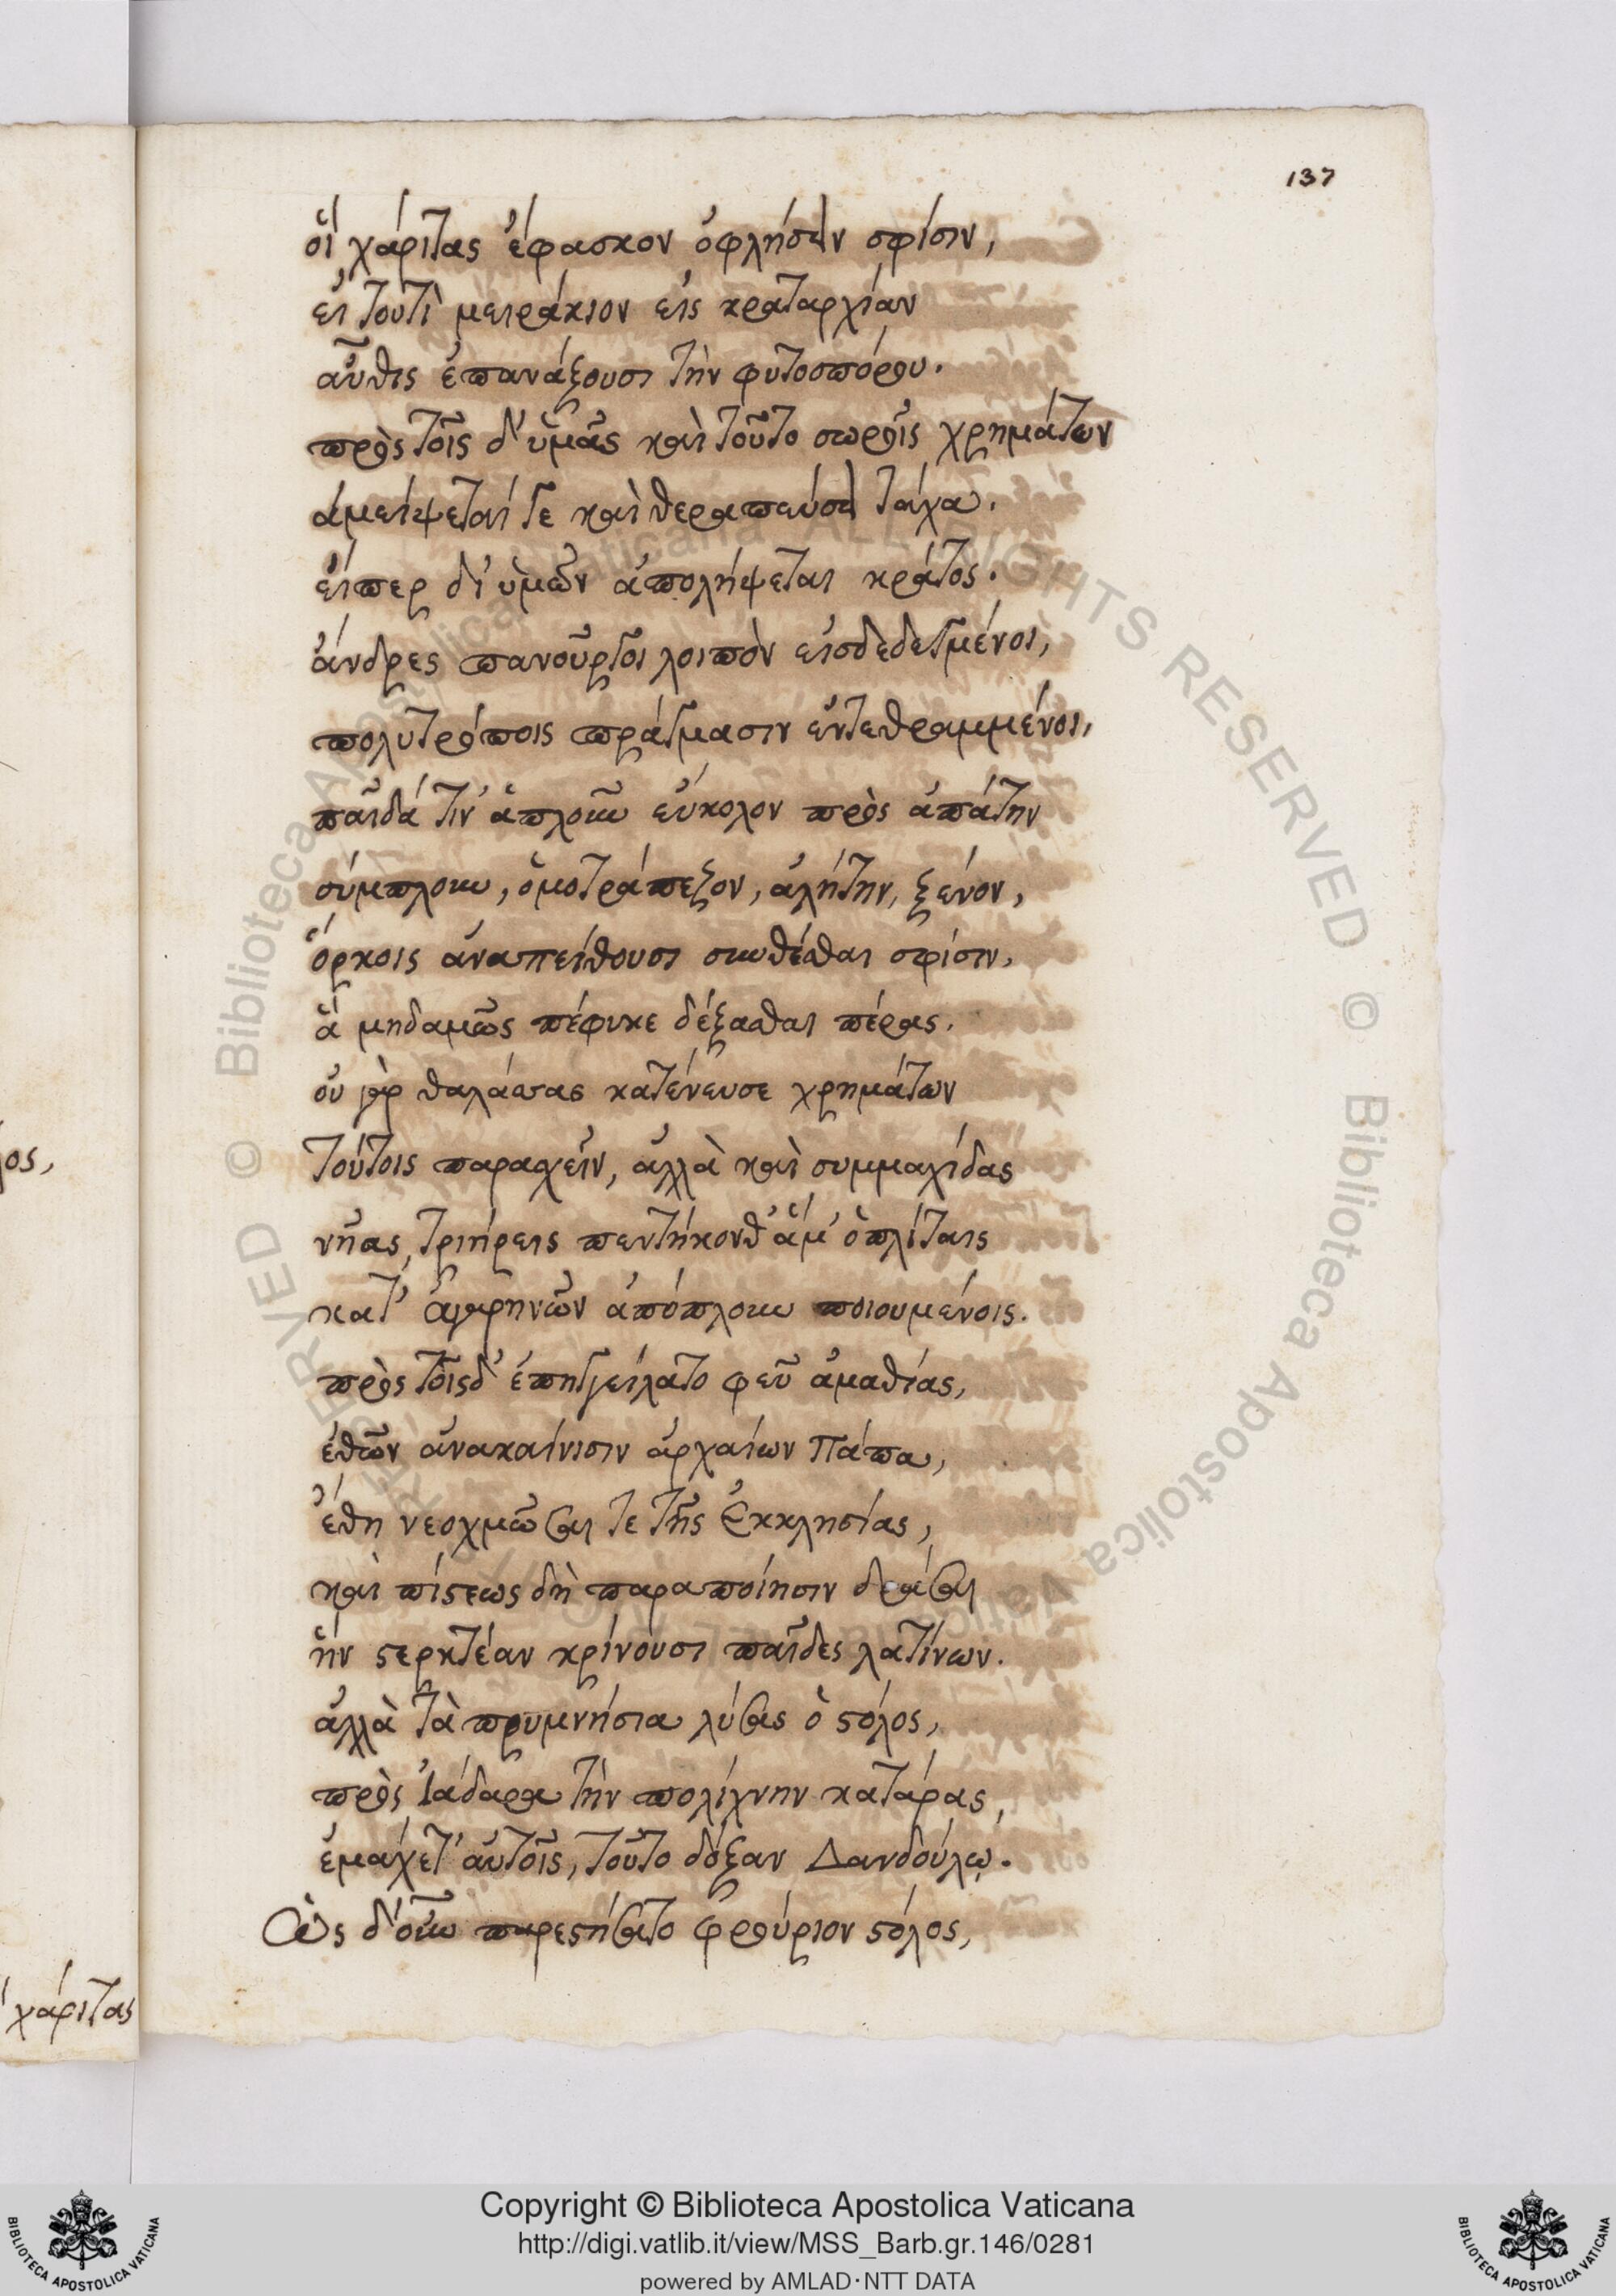 137
οἳ χάριτας ἔφασκον ὀφλήσειν σφίσιν,
εἰ τουτὶ μειράκιον εἰς κραταρχίαν
αὖθις ἐπανάξουσι τὴν φυτοσπόρου.
πρὸς τοῖς δ' ὑμᾶς καὶ τοῦτο σωροῖς χρημάτων
ἀμείψεταί γε καὶ θεραπεύσει τάχα.
εἴπερ δι' ὑμῶν ἀπολήψεται κράτος.
ἄνδρες πανοῦργοι λοιπὸν εἰσδεδεγμένοι,
πολυτρόποις πράγμασιν ἐντεθραμμένοι,
παῖδά τιν' ἁπλοῦν εὔκολον πρὸς ἀπάτην
σύμπλουν, ὁμοτράπεζον, ἀλήτην, ξένον,
ὅρκοις ἀναπείθουσι συνθέσθαι σφίσιν,
ἃ μηδαμῶς πέφυκε δέξασθαι πέρας.
οὐ γὰρ θαλάσσας κατένευσε χρημάτων
τούτοις παρασχεῖν, ἀλλὰ καὶ συμμαχίδας
νῆας, τριήρεις πεντήκονθ' ἅμ' ὁπλίταις
κατ' ἀγαρηνῶν ἀπόπλουν ποιουμένοις.
πρὸς τοῖσδ' ἐπηγγείλατο φεῦ ἀμαθίας,
ἐθῶν ἀνακαίνισιν ἀρχαίων Πάπα,
ἔθη νεοχμῶσαι τε τῆς Ἐκκλησίας,
καὶ πίστεως δὴ παραποίησιν δρᾶσαι
ἣν στερκτέαν κρίνουσι παῖδες λατίνων.
ἀλλὰ τὰ πρυμνήσια λύσας ὁ στόλος,
πρὸς Ἰάδαρα τὴν πολίχνην κατάρας,
ἐμάχετ' αὐτοῖς, τοῦτο δόξαν Δανδούλῳ.
Ὡς δ' οὖν παρεστήσατο φρούριον στόλος,
λος,
χάριτας
Copyright © Biblioteca Apostolica Vaticana
http://digi.vatlib.it/view/MSS_Barb.gr.146/0281
powered by AMLAD·NTT DATA
BIBLIOTECA APOSTOLICA VATICANA
BIBLIOTECA APOSTOLICA VATICANA